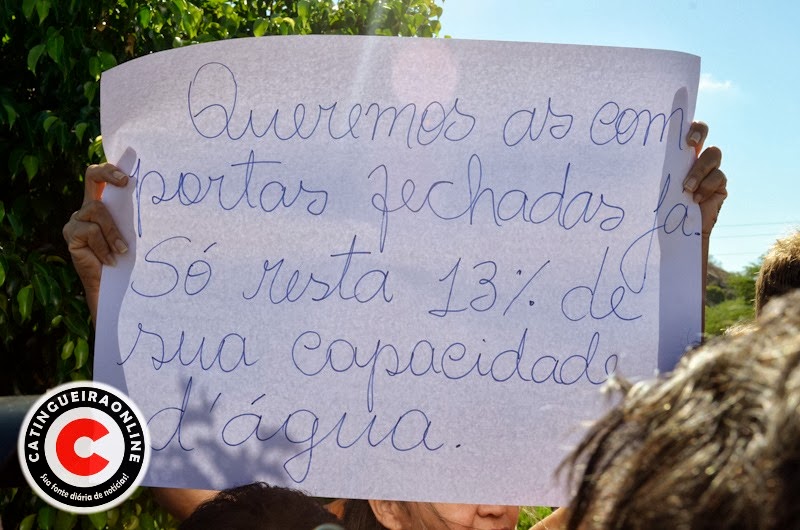 Queremos as com
portas fechadas já.
Só resta 13% de
sua capacidade
d'água.
CATINGUEIRAONLINE
C
Sua fonte diária de notícias!